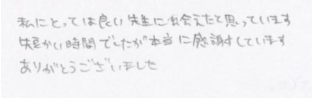 私にとっては良い先生に出会えたと思っています
短かい時間でしたが本当に感謝しています
ありがとうございました